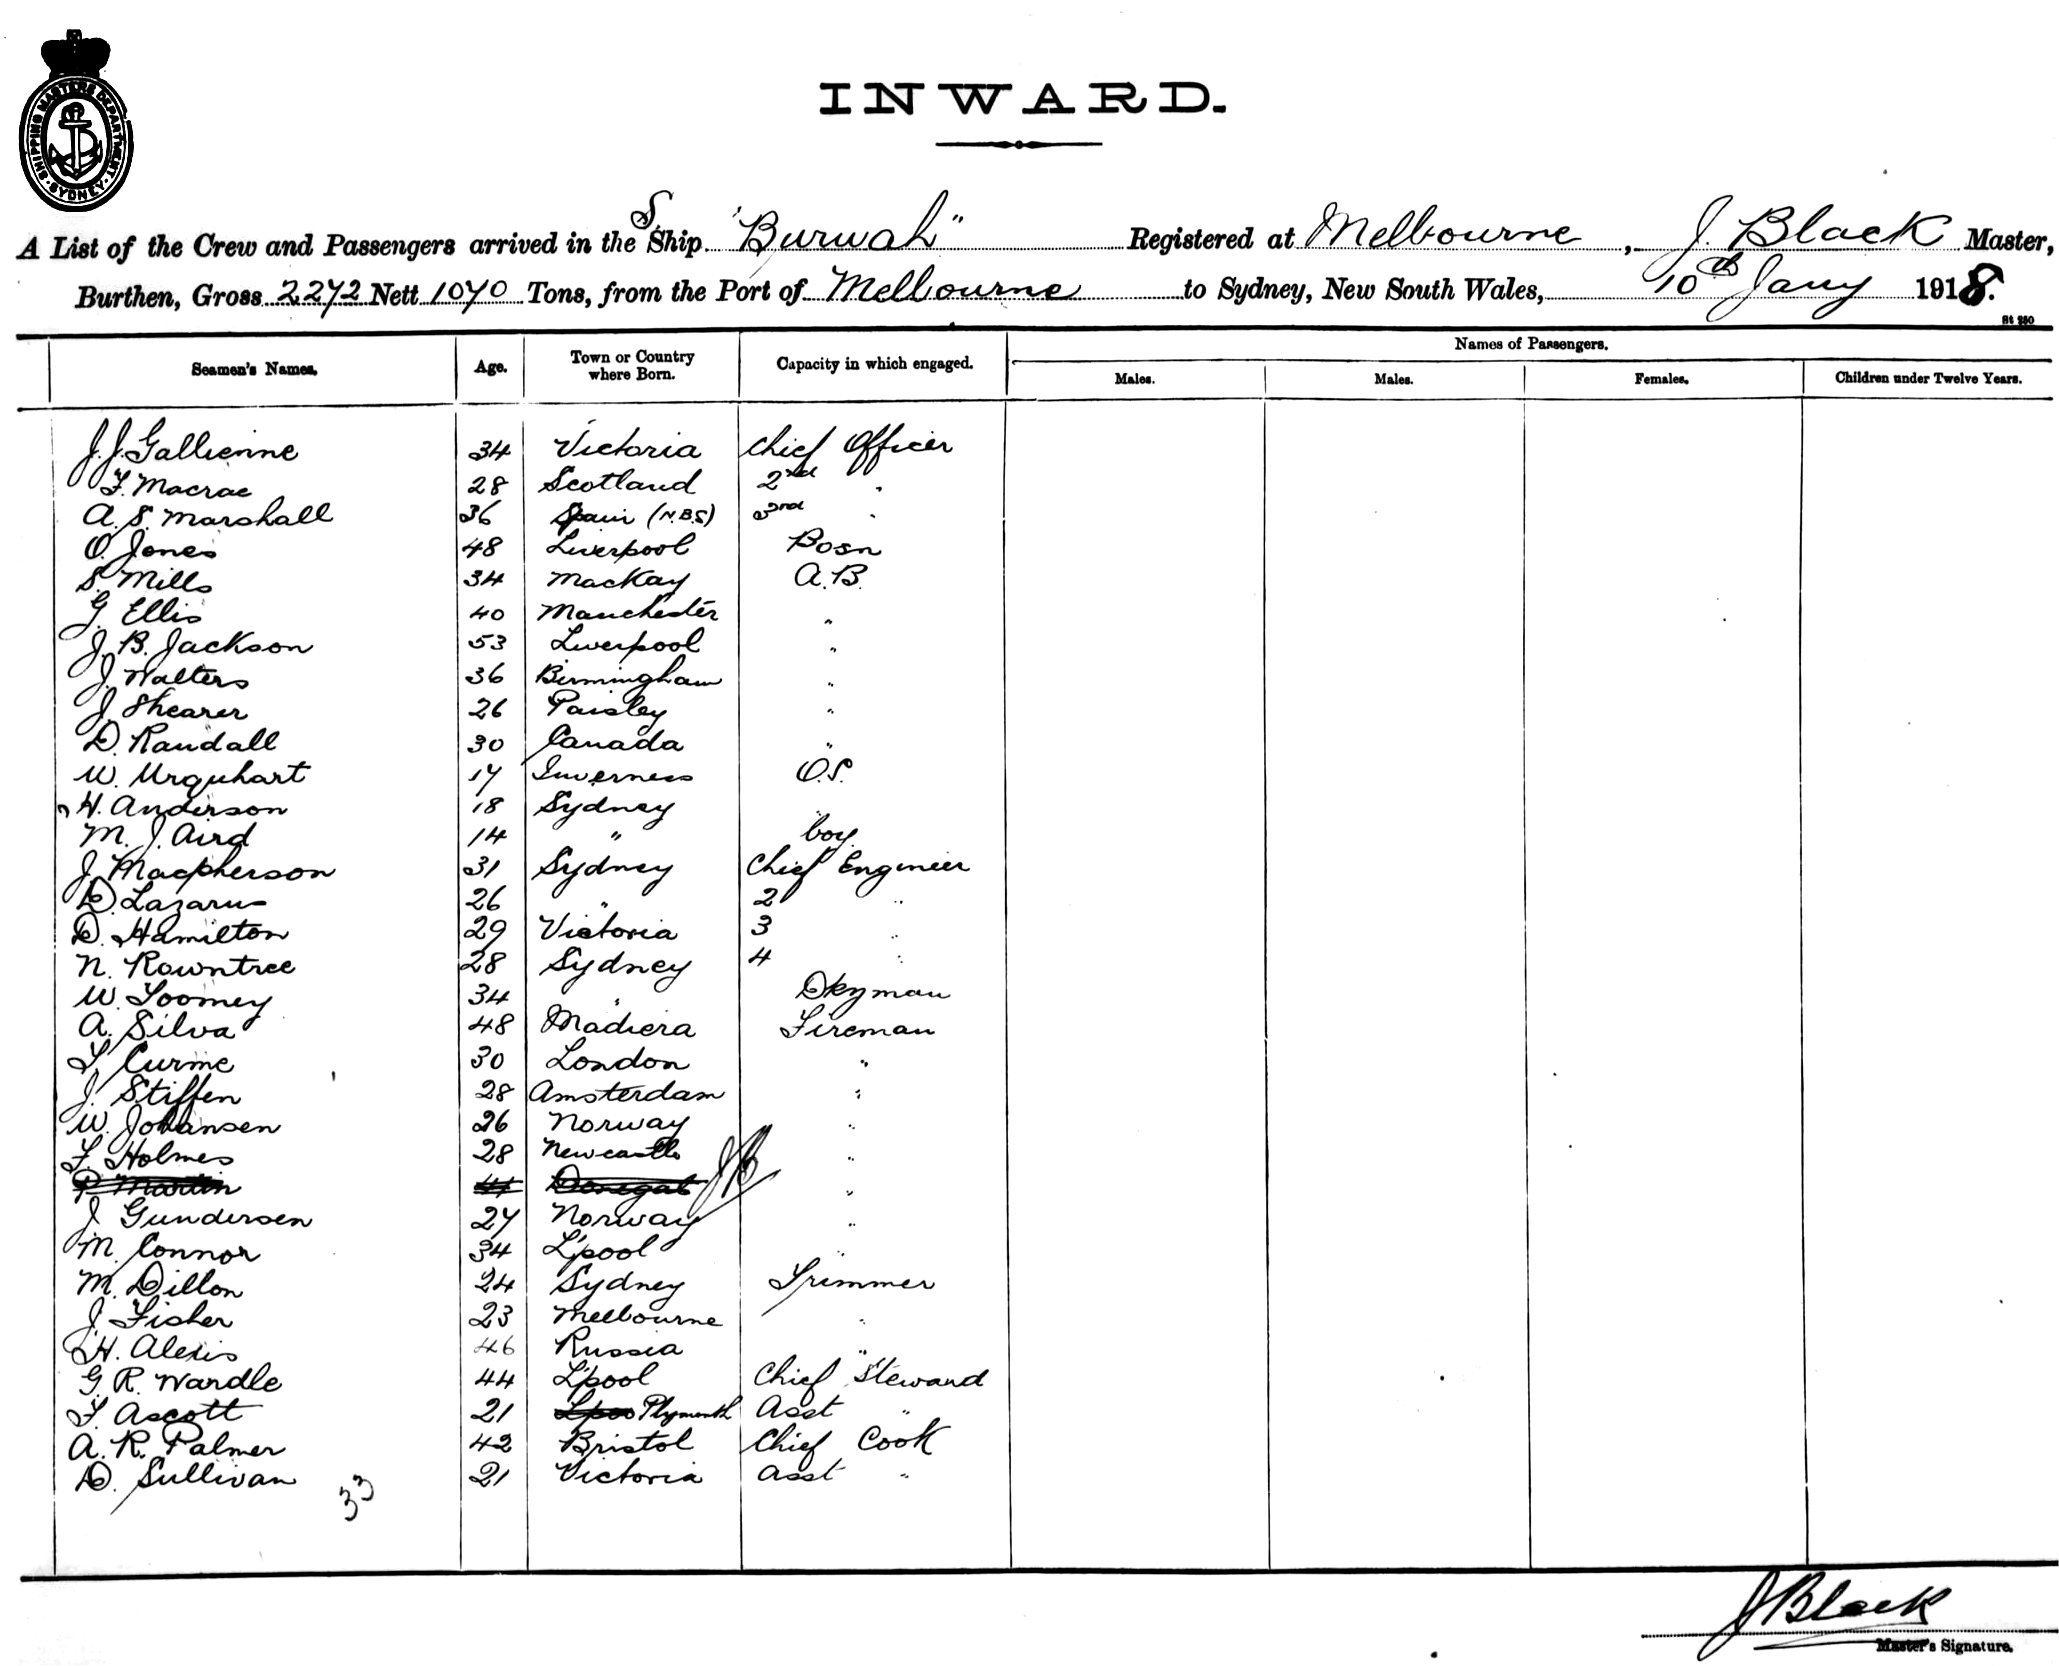 SHIPPING MASTERS DEPARTMENT
· SYDNEY ·
INWARD.
A List of the Crew and Passengers arrived in the S Ship "Burwah" Registered at Melbourne, J. Black Master,
Burthen, Gross 2272 Nett 1070 Tons, from the Port of Melbourne to Sydney, New South Wales, 10th Jany 1918.
St 280
Seamen's Names. Age. Town or Country where Born. Capacity in which engaged. Names of Passengers.
Males. Males. Females. Children under Twelve Years.
J. J. Gallienne 34 Victoria Chief Officer
F. Macrae 28 Scotland 2nd "
A. S. Marshall 36 Spain (N.B.S) 3rd "
O. Jones 48 Liverpool Bosn
S. Mills 34 MacKay A.B.
G. Ellis 40 Manchester "
J. B. Jackson 53 Liverpool "
J. Walters 36 Birmingham "
J. Shearer 26 Paisley "
D. Randall 30 Canada "
W. Urquhart 17 Inverness O.S.
H. Anderson 18 Sydney "
M. J. Aird 14 " boy
J. Macpherson 31 Sydney Chief Engineer
D. Lazarus 26 " 2 "
D. Hamilton 29 Victoria 3 "
N. Rowntree 28 Sydney 4 "
W. Toomey 34 " Dkyman
A. Silva 48 Madiera Fireman
T. Curme 30 London "
J. Stiffen 28 Amsterdam "
W. Johansen 26 Norway "
F. Holmes 28 Newcastle "
P. Martin 41 Donegal JB "
J. Gundersen 27 Norway "
M. Connor 34 L'pool "
M. Dillon 24 Sydney Trimmer
J. Fisher 23 Melbourne "
H. Alexis 46 Russia "
G. R. Wardle 44 L'pool Chief Steward
F. Ascott 21 Lpoo Plymouth Asst "
A. R. Palmer 42 Bristol Chief Cook
D. Sullivan 21 Victoria Asst "
33
J Black
Master's Signature.